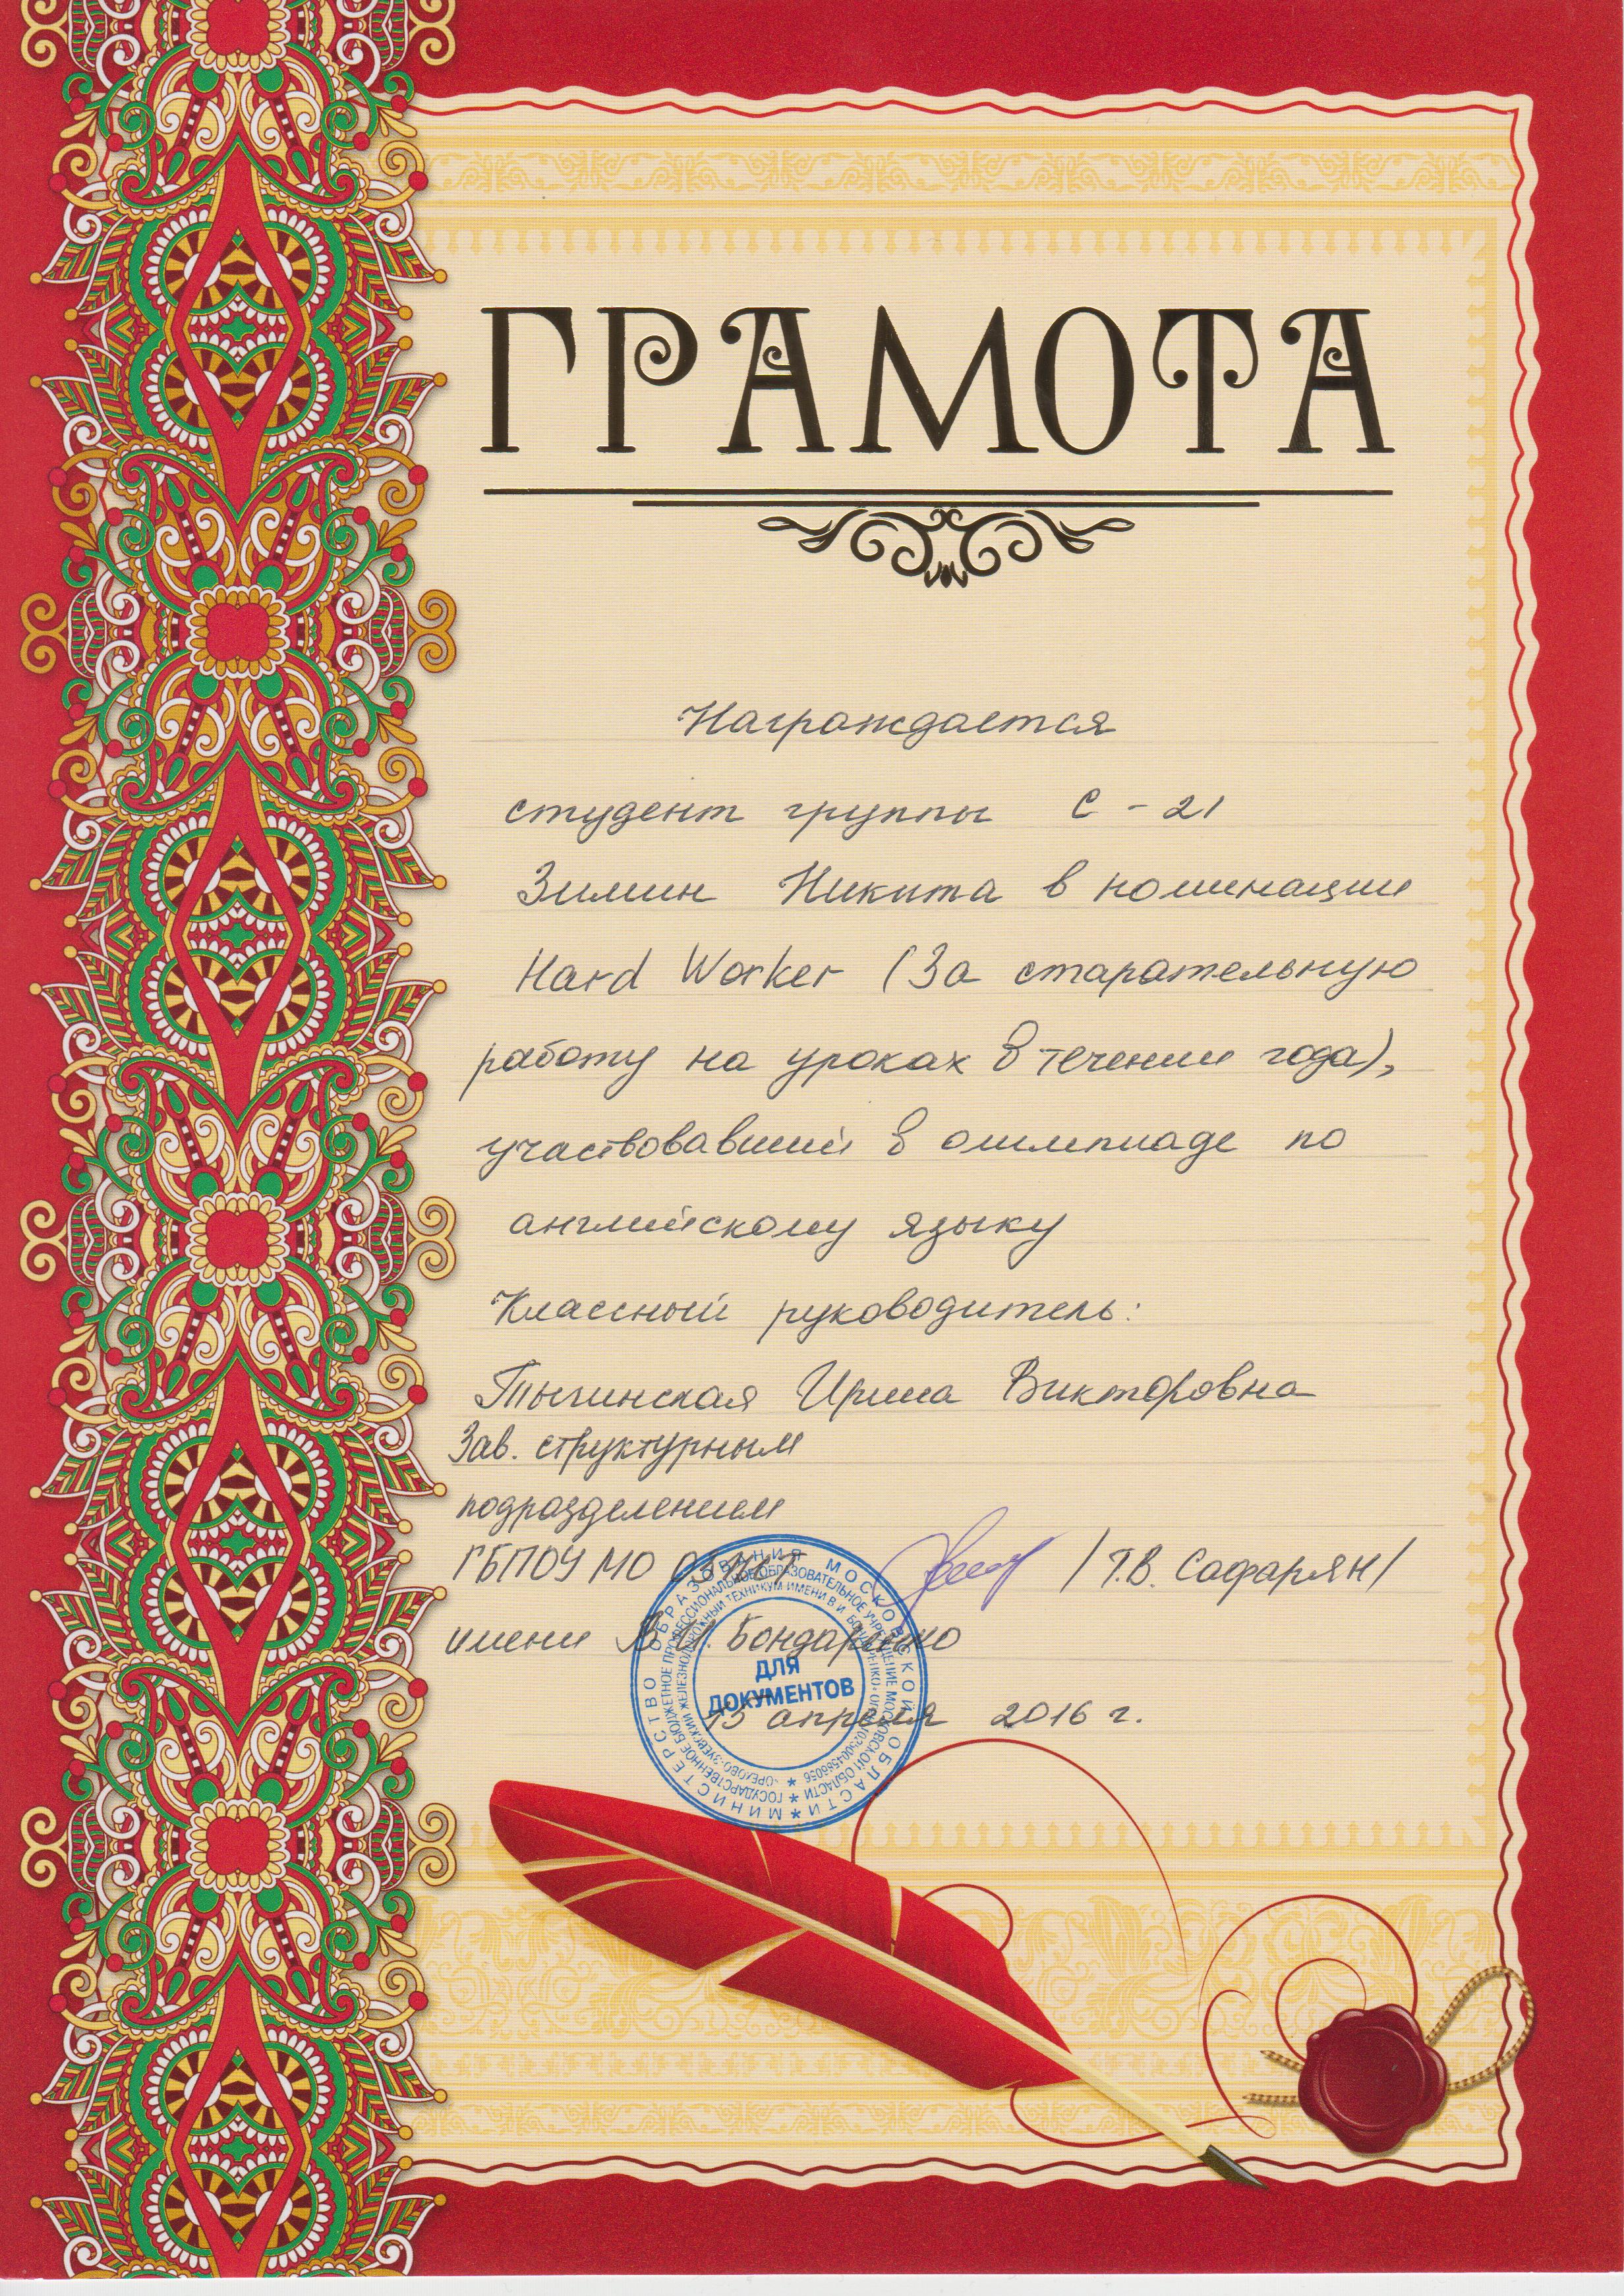 ГРАМОТА
Награждается
студент группы С - 21
Зимин Никита в номинации
Hard Worker (За старательную
работу на уроках в течении года),
участвовавший в олимпиаде по
английскому языку
Классный руководитель:
Тычинская Ирина Викторовна
Зав. структурным
подразделением
ГБПОУ МО ОЗЖТ /Т.В. Сафарян/
имени В.И. Бондаренко
15 апреля 2016 г.
МИНИСТЕРСТВО ОБРАЗОВАНИЯ МОСКОВСКОЙ ОБЛАСТИ
ГОСУДАРСТВЕННОЕ БЮДЖЕТНОЕ ПРОФЕССИОНАЛЬНОЕ ОБРАЗОВАТЕЛЬНОЕ УЧРЕЖДЕНИЕ МОСКОВСКОЙ ОБЛАСТИ
ОРЕХОВО-ЗУЕВСКИЙ ЖЕЛЕЗНОДОРОЖНЫЙ ТЕХНИКУМ ИМЕНИ В.И. БОНДАРЕНКО
ДЛЯ
ДОКУМЕНТОВ